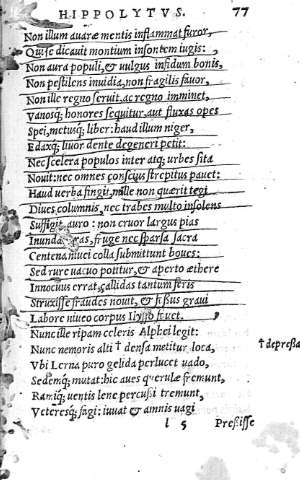 HIPPOLYTVS. 77
Non illum auaræ mentis inflammat furor,
Qui se dicauit montium insontem iugis:
Non aura populi, & uulgus infidum bonis,
Non pestilens inuidia, non fragilis fauor,
Non ille regno seruit, ac regno imminet,
Vanosq; honores sequitur, aut fluxas opes
Spei, metusq; liber: haud illum niger,
Edaxq; liuor dente degeneri petit:
Nec scelera populos inter atq; urbes sita
Nouit: nec omnes conscius strepitus pauet:
Haud uerba fingit, mille non quærit tegi
Diues columnis, nec trabes multo insolens
Suffigit auro: non cruor largus pias
Inundat aras, fruge nec sparsa sacra
Centena niuei colla submittunt boues:
Sed rure uacuo potitur, & aperto æthere
Innocuus errat, callidas tantum feris
Struxisse fraudes nouit, & fessus graui
Labore niueo corpus Ilysso fouet.
Nunc ille ripam celeris Alphei legit:
Nunc nemoris alti † densa metitur loca, † depressa
Vbi Lerna puro gelida perlucet uado,
Sedemq; mutat: hic aues querulæ fremunt,
Ramiq; uentis lene percussi tremunt,
Veteresq; fagi: iuuat & amnis uagi
l 5 Preßisse